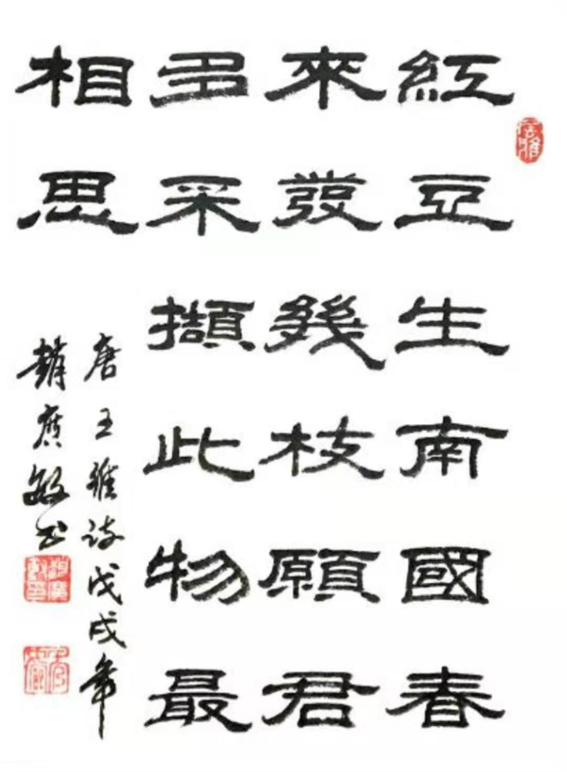 紅豆生南國春
來發幾枝願君
多采擷此物最
相思
唐王維詩戊戌年
趙廣敏書